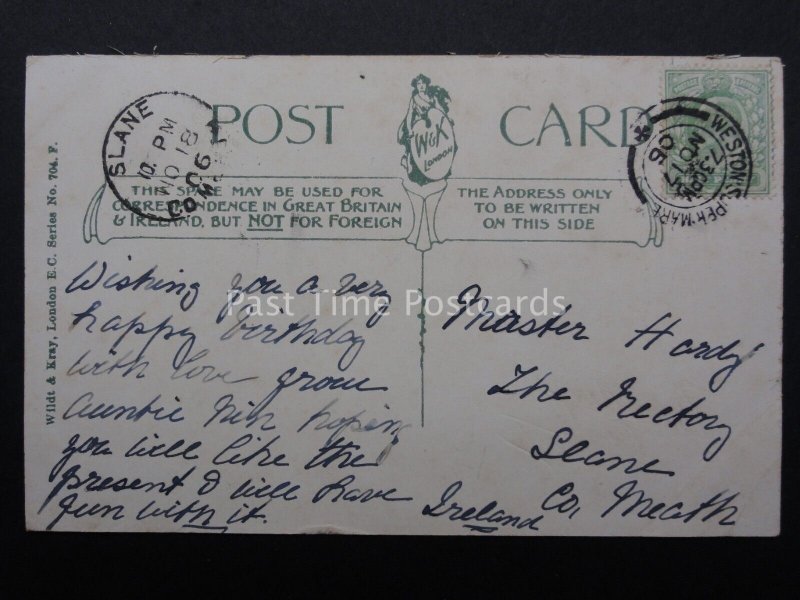 POST CARD
W&K
LONDON
SLANE
10. PM
NO 18
06
CO. M
WESTON-SUPER-MARE
7.30 PM
NO 17
06
THIS SPACE MAY BE USED FOR
CORRESPONDENCE IN GREAT BRITAIN
& IRELAND, BUT NOT FOR FOREIGN
THE ADDRESS ONLY
TO BE WRITTEN
ON THIS SIDE
Wildt & Kray, London E.C. Series No. 704. F.
Wishing you a very
happy birthday
with love from
Auntie Nin hoping
you will like the
present & will have
fun with it.
Master Hardy
The Rectory
Slane
Co, Meath
Ireland
Past Time Postcards